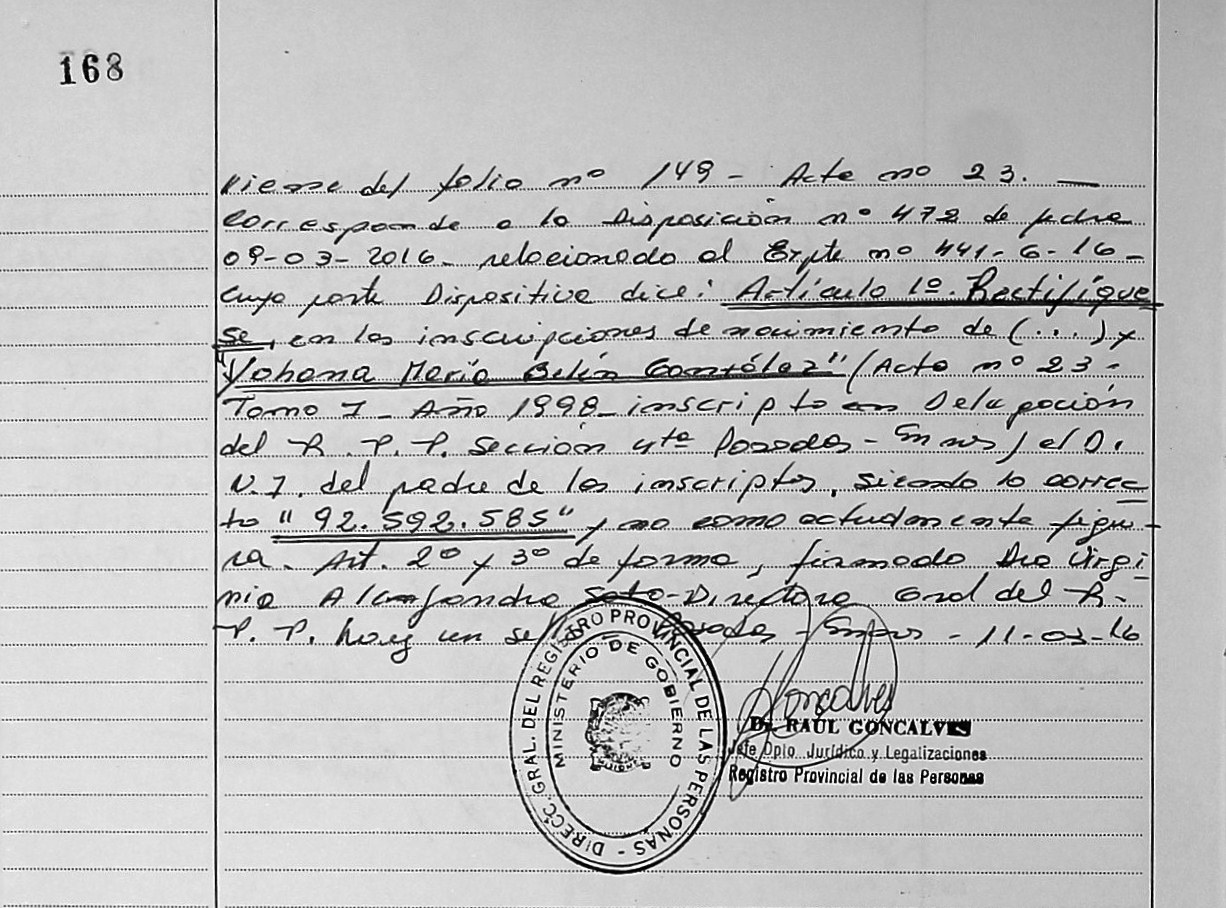 168
Viene del folio nº 149 - Acta nº 23. —
Corresponde a la Disposición nº 472 de fecha
09-03-2016- relacionado al Expte nº 441-6-16-
cuya parte Dispositiva dice: Artículo 1º. Rectifíque
se, en las inscripciones de nacimiento de (...) y
"Yohana María Belén González" (Acta nº 23-
Tomo I - Año 1998- inscripto en Delegación
del R. P. P. Sección 4ta Posadas - Mnes) el D.
N.I. del padre de los inscriptos, siendo lo correc
to "92.592.585" y no como actualmente figu-
ra. Art. 2º y 3º de forma, firmado Dra Virgi
nia Alejandra Soto-Directora Gral del R.
P. P. hay un sello Posadas - Mnes - 11-03-16
DIRECC. GRAL. DEL REGISTRO PROVINCIAL DE LAS PERSONAS -
MINISTERIO DE GOBIERNO
MISIONES
Goncalves
Dr. RAÚL GONCALVES
Jefe Dpto. Jurídico y Legalizaciones
Registro Provincial de las Personas